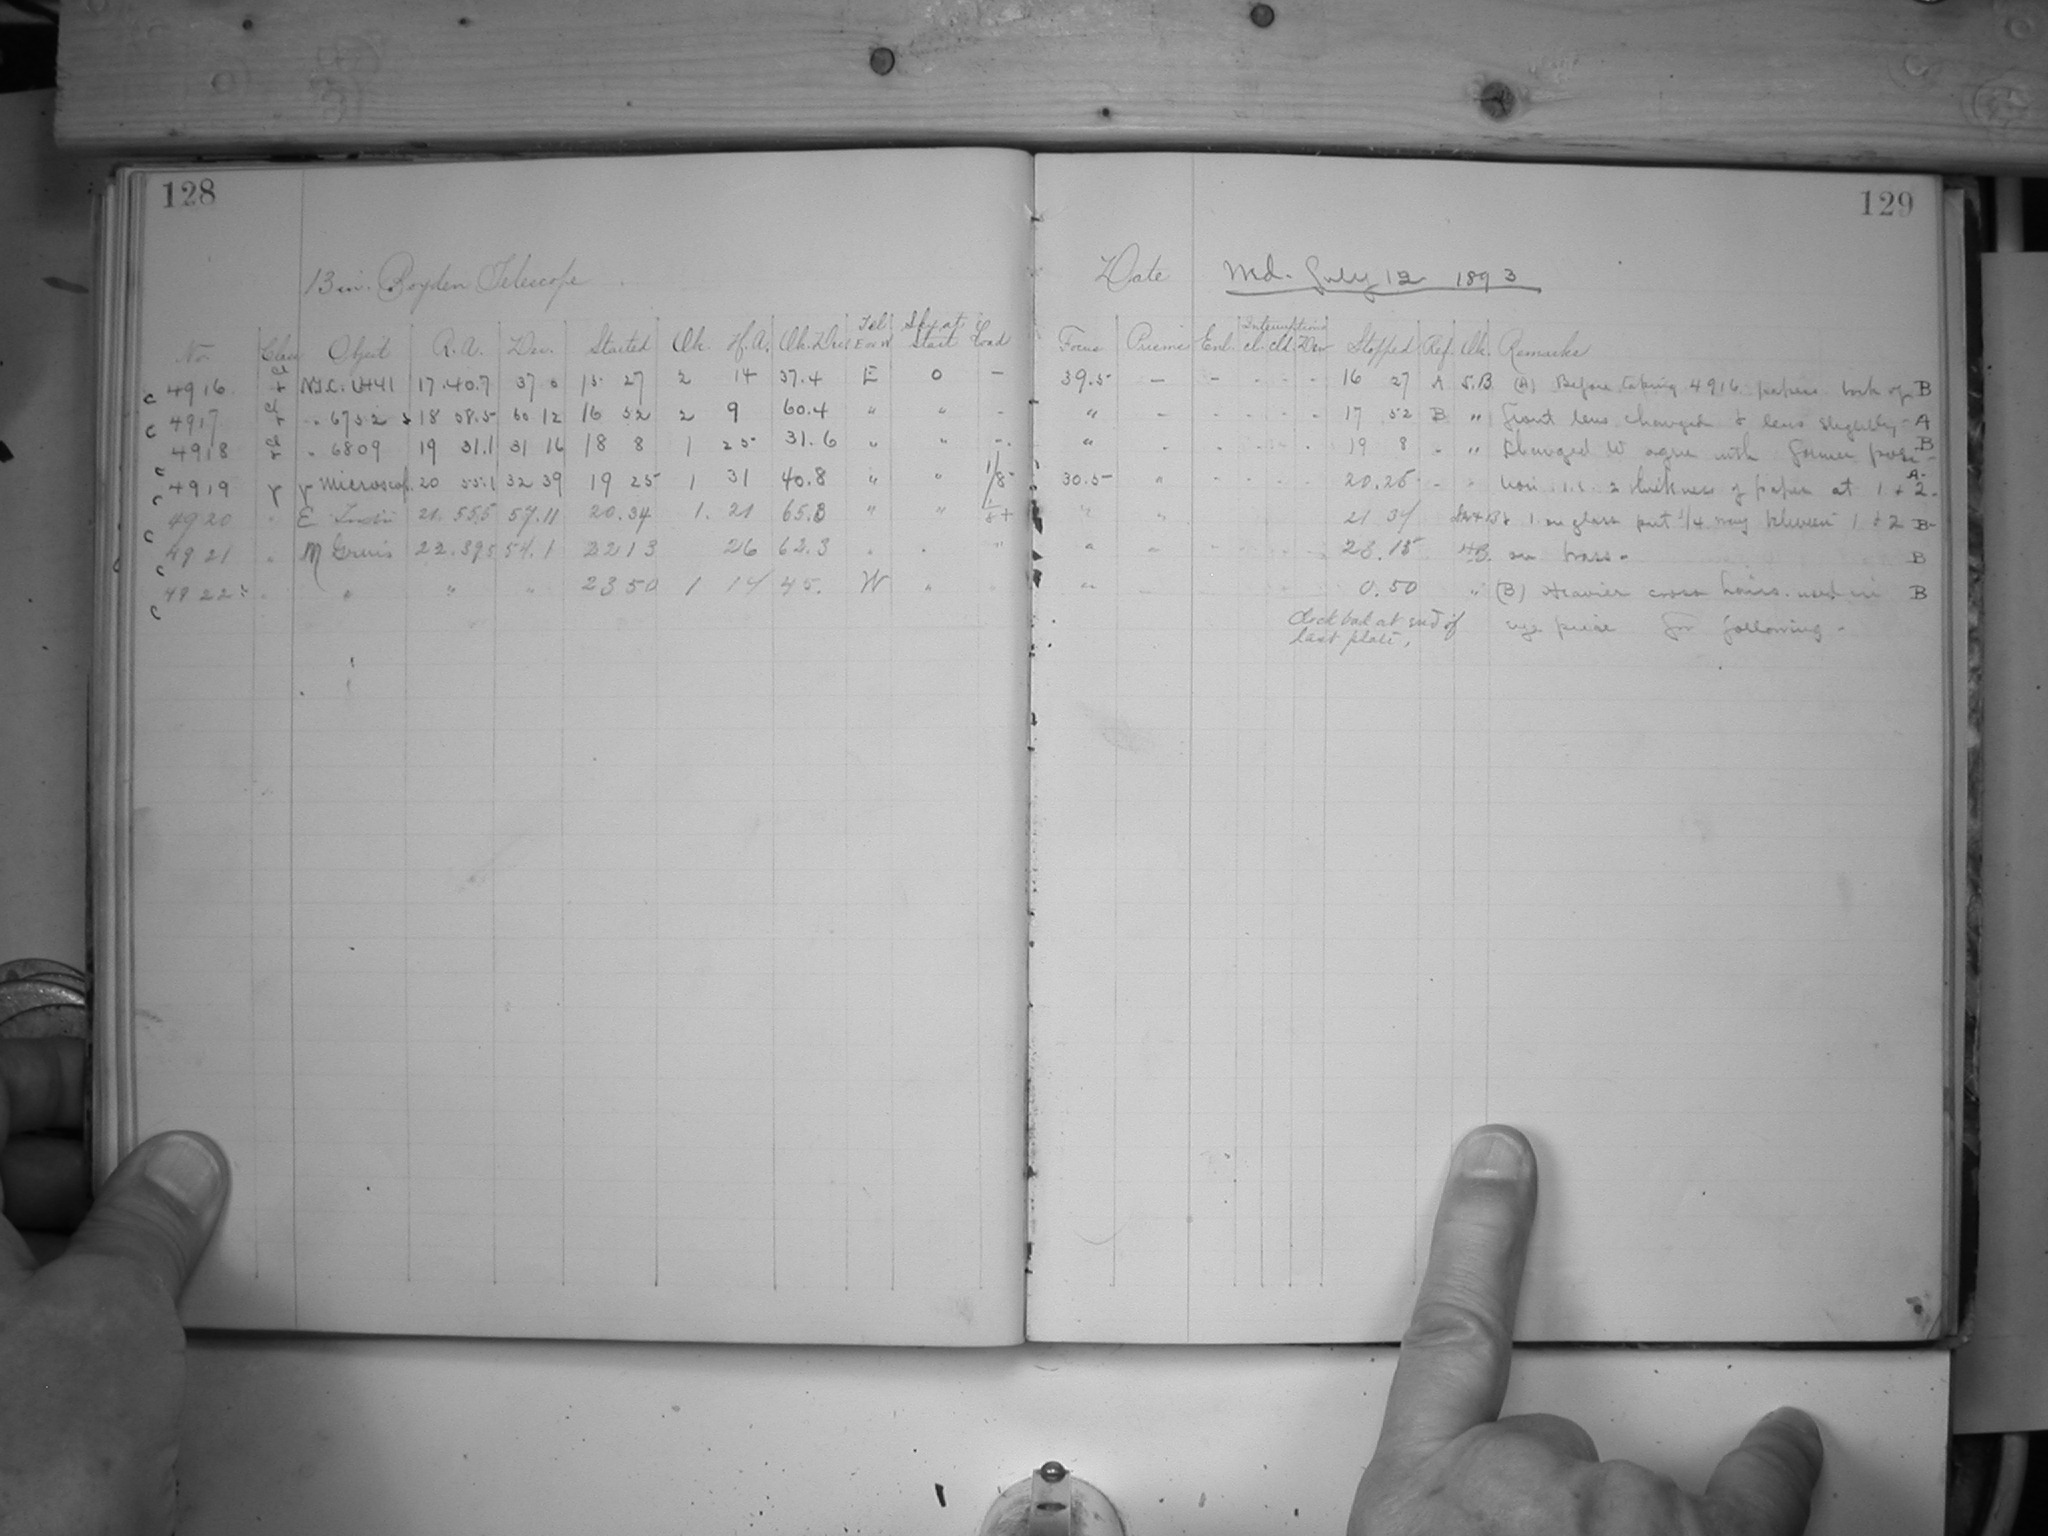 128
129
13 in. Boyden Telescope
Date Wed. July 12 1893
No. Class Object R.A. Dec. Started Ck. H.A. Ck. Dec. Tel. E or W Sky at Start Cond
Focus Prisms Enl. Interruptions cl. cld. Dev Stopped Ref. Ck. Remarks
C 4916 N.G.C. 6441 17.40.7 37 0 15 27 2 14 37.4 E 0 –
39.5 – – – – – 16 27 A S.B. (A) Before taking 4916 papers back of B
C 4917 " 6752 18 58.5 60 12 16 52 2 9 60.4 " " –
" – – – – – 17 52 B " front lens changed & lens slightly A
C 4918 " 6809 19 31.1 31 16 18 8 1 25 31.6 " " –
" – – – – – 19 8 " " changed to agree with former posi- B
C 4919 γ γ Microscop. 20 55.1 32 39 19 25 1 31 40.8 " "
30.5 " 20.25 " thickness of paper at 1 + 2. A
C 4920 " E 21. 55.5 57.11 20.34 1. 21 65.8 " " 8+
" " 21 34 1 on glass part 1/4 way between 1 + 2 B
C 4921 " M Gruis 22.39.5 54.1 22 13 26 62.3 " " "
" " 23.15 on brass. B
C 4922 " " " " 23 50 1 14 45. W "
" 0.50 " (B) Heavier cross hairs used in B
Clock bad at end of eye piece for following.
last plate.